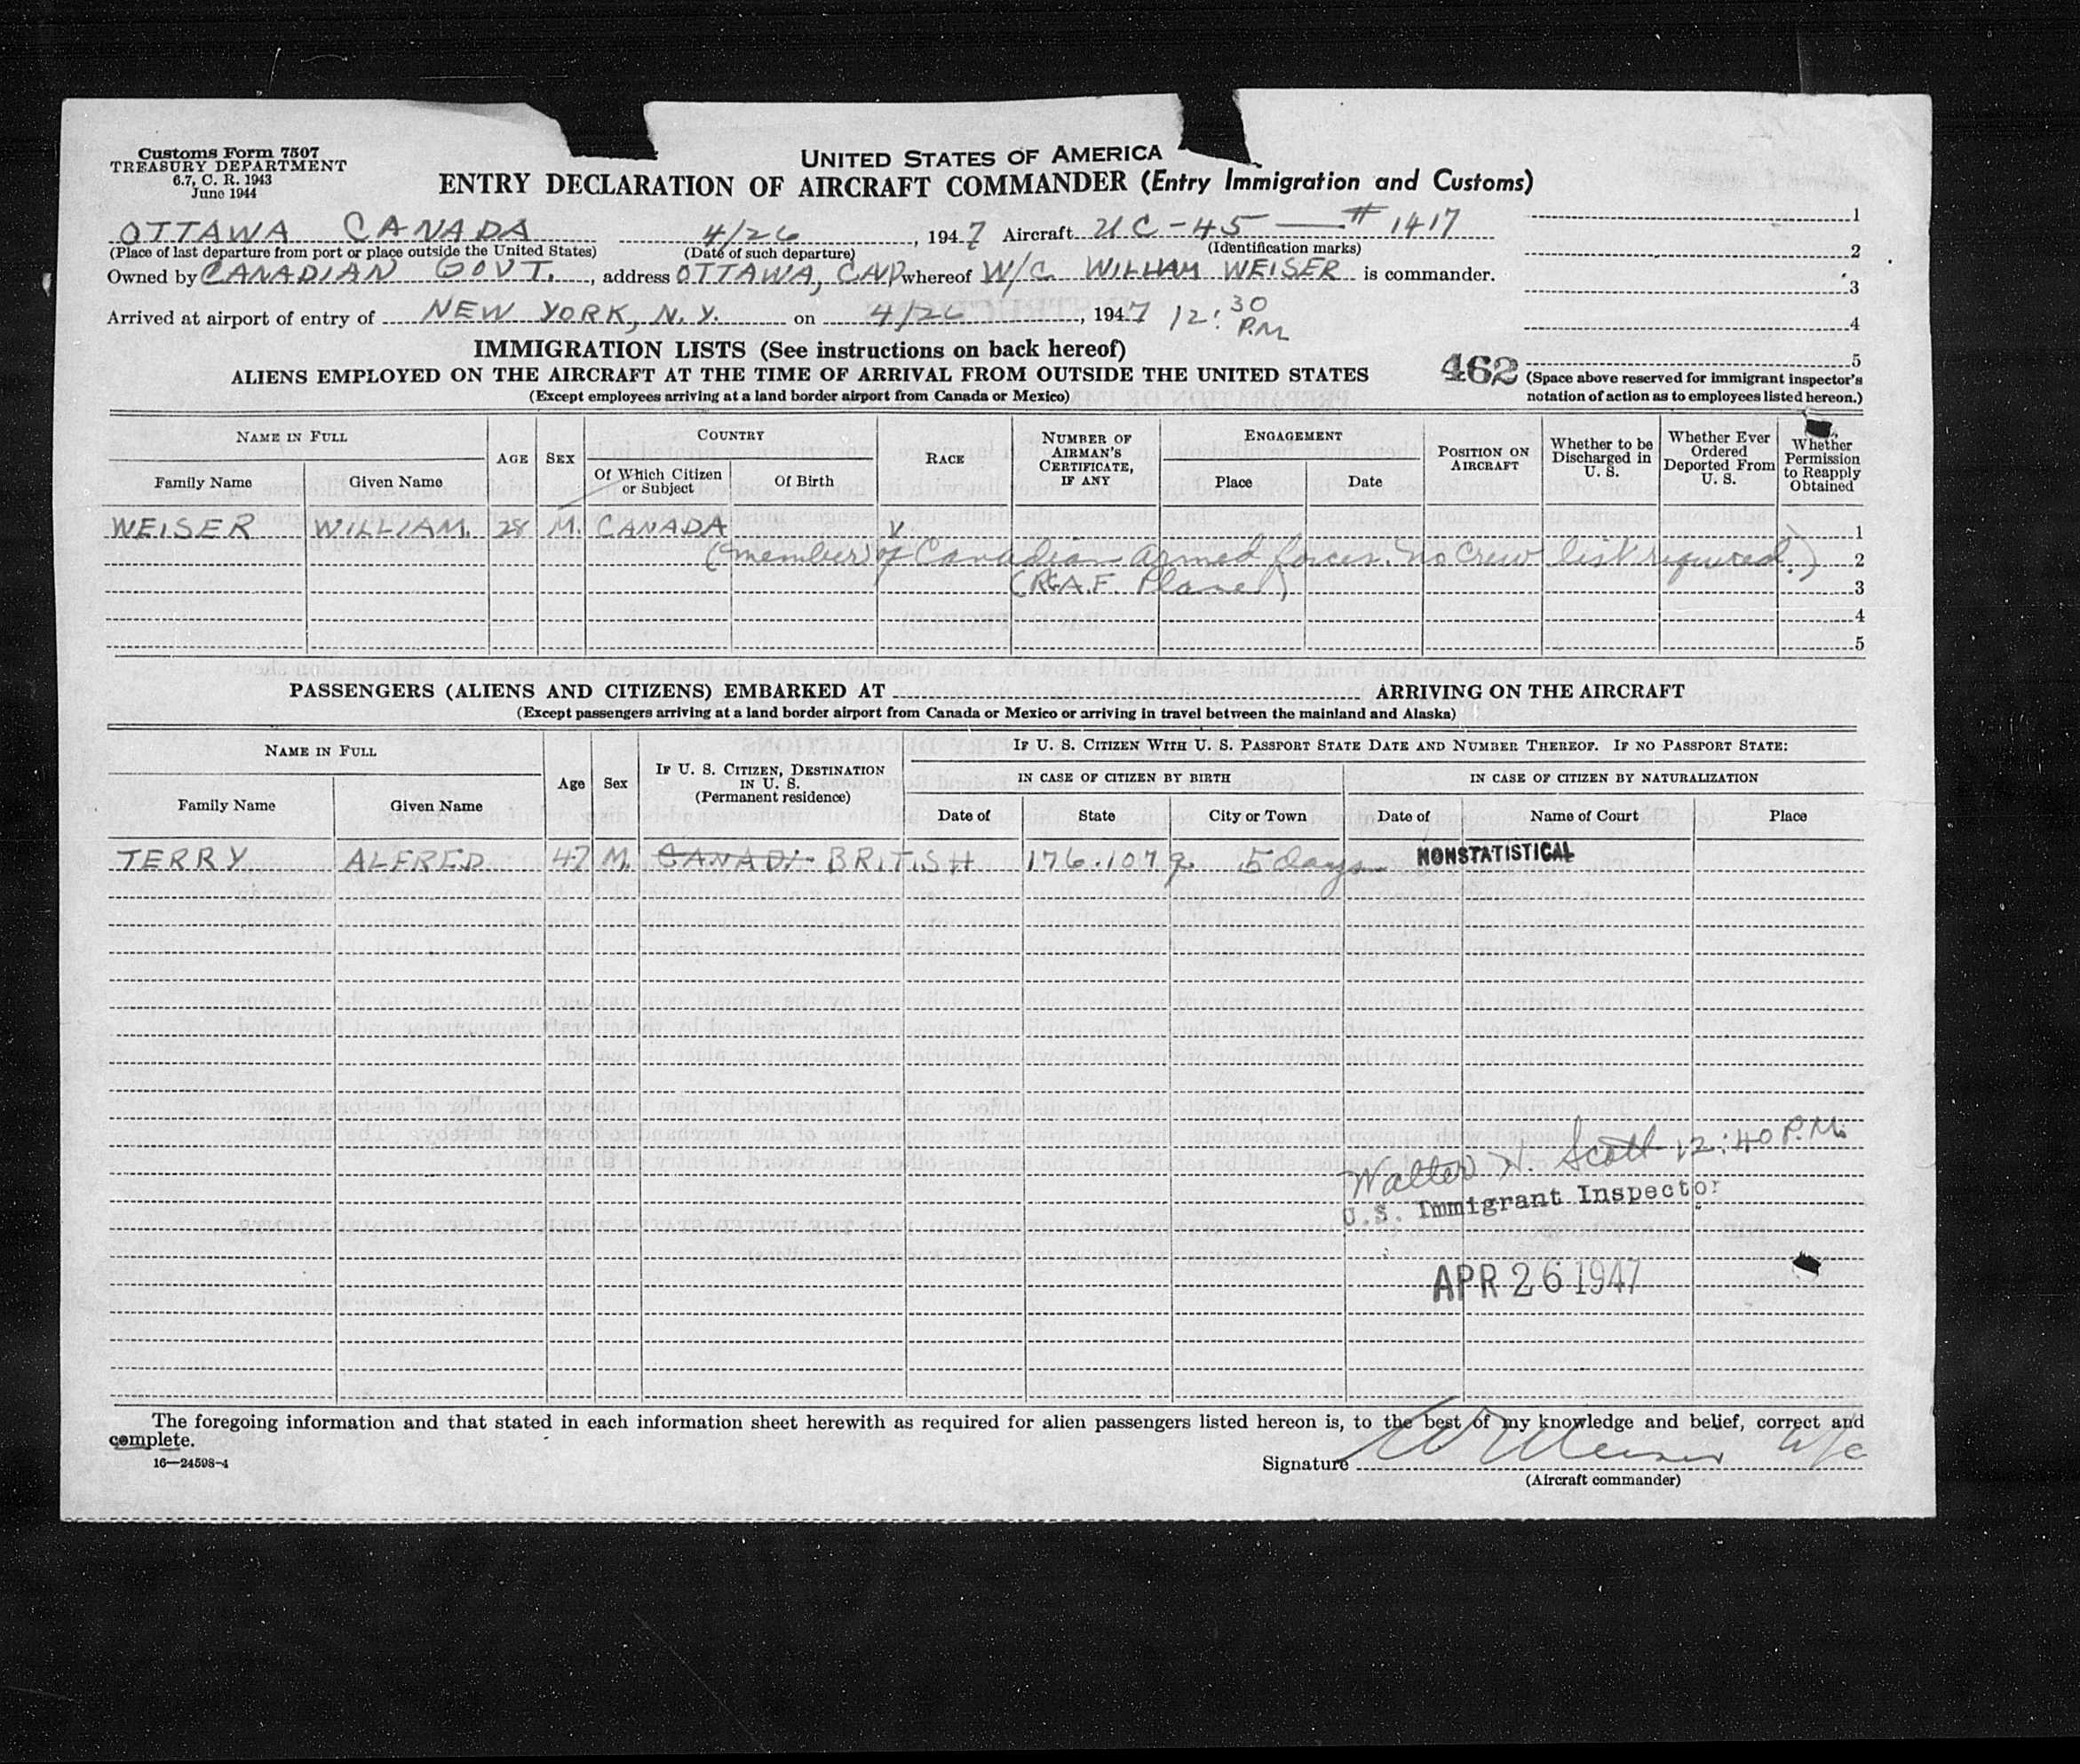 Customs Form 7507
TREASURY DEPARTMENT
6.7, C. R. 1943
June 1944
UNITED STATES OF AMERICA
ENTRY DECLARATION OF AIRCRAFT COMMANDER (Entry Immigration and Customs)
OTTAWA CANADA 4/26, 1947 Aircraft UC-45 — #1417
(Place of last departure from port or place outside the United States) (Date of such departure) (Identification marks)
Owned by CANADIAN GOVT., address OTTAWA, CAD whereof W/C WILLIAM WEISER is commander.
Arrived at airport of entry of NEW YORK, N.Y. on 4/26, 1947 12:30 P.M.
1
2
3
4
5
IMMIGRATION LISTS (See instructions on back hereof)
ALIENS EMPLOYED ON THE AIRCRAFT AT THE TIME OF ARRIVAL FROM OUTSIDE THE UNITED STATES
(Except employees arriving at a land border airport from Canada or Mexico)
462
(Space above reserved for immigrant inspector's
notation of action as to employees listed hereon.)
NAME IN FULL AGE SEX COUNTRY RACE NUMBER OF AIRMAN'S CERTIFICATE, IF ANY ENGAGEMENT POSITION ON AIRCRAFT Whether to be Discharged in U. S. Whether Ever Ordered Deported From U. S. Whether Permission to Reapply Obtained
Family Name Given Name Of Which Citizen or Subject Of Birth Place Date
WEISER WILLIAM. 28 M. CANADA V 1
(member) of Canadian armed forces. No crew list required.) 2
(R.C.A.F. Plane) 3
4
5
PASSENGERS (ALIENS AND CITIZENS) EMBARKED AT ARRIVING ON THE AIRCRAFT
(Except passengers arriving at a land border airport from Canada or Mexico or arriving in travel between the mainland and Alaska)
NAME IN FULL Age Sex IF U. S. CITIZEN, DESTINATION IN U. S. (Permanent residence) IF U. S. CITIZEN WITH U. S. PASSPORT STATE DATE AND NUMBER THEREOF. IF NO PASSPORT STATE:
IN CASE OF CITIZEN BY BIRTH IN CASE OF CITIZEN BY NATURALIZATION
Family Name Given Name Date of State City or Town Date of Name of Court Place
TERRY ALFRED 47 M. CANADI- BRITISH 176.107 5 days NONSTATISTICAL
Walter N. Scott 12:40 P.M.
U.S. Immigrant Inspector
APR 26 1947
The foregoing information and that stated in each information sheet herewith as required for alien passengers listed hereon is, to the best of my knowledge and belief, correct and
complete.
16—24598-4
Signature W Weiser W/C
(Aircraft commander)